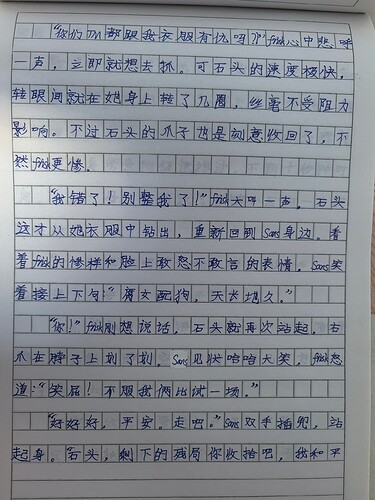 “你们TM都跟我衣服有仇吗?!”frisk心中悲呼
一声，立即就想去抓。可石头的速度极快，
转眼间就在她身上转了几圈，丝毫不受阻力
影响。不过石头的爪子也是刻意收回了，不
然frisk更惨。
“我错了！别整我了！”frisk大叫一声。石头
这才从她衣服中钻出，重新回到Sans身边。看
着frisk的惨样和脸上敢怒不敢言的表情，Sans笑
着接上下句：“婊女配狗，天长地久。”
“你！”frisk刚想说话，石头就再次站起，右
爪在脖子上划了划。Sans见状哈哈大笑。frisk怒
道：“笑屁！不服我俩出试一场。”
“好好好，平安。走吧。”Sans双手插兜，站
起身。“石头，剩下的残局你收拾吧，我和平